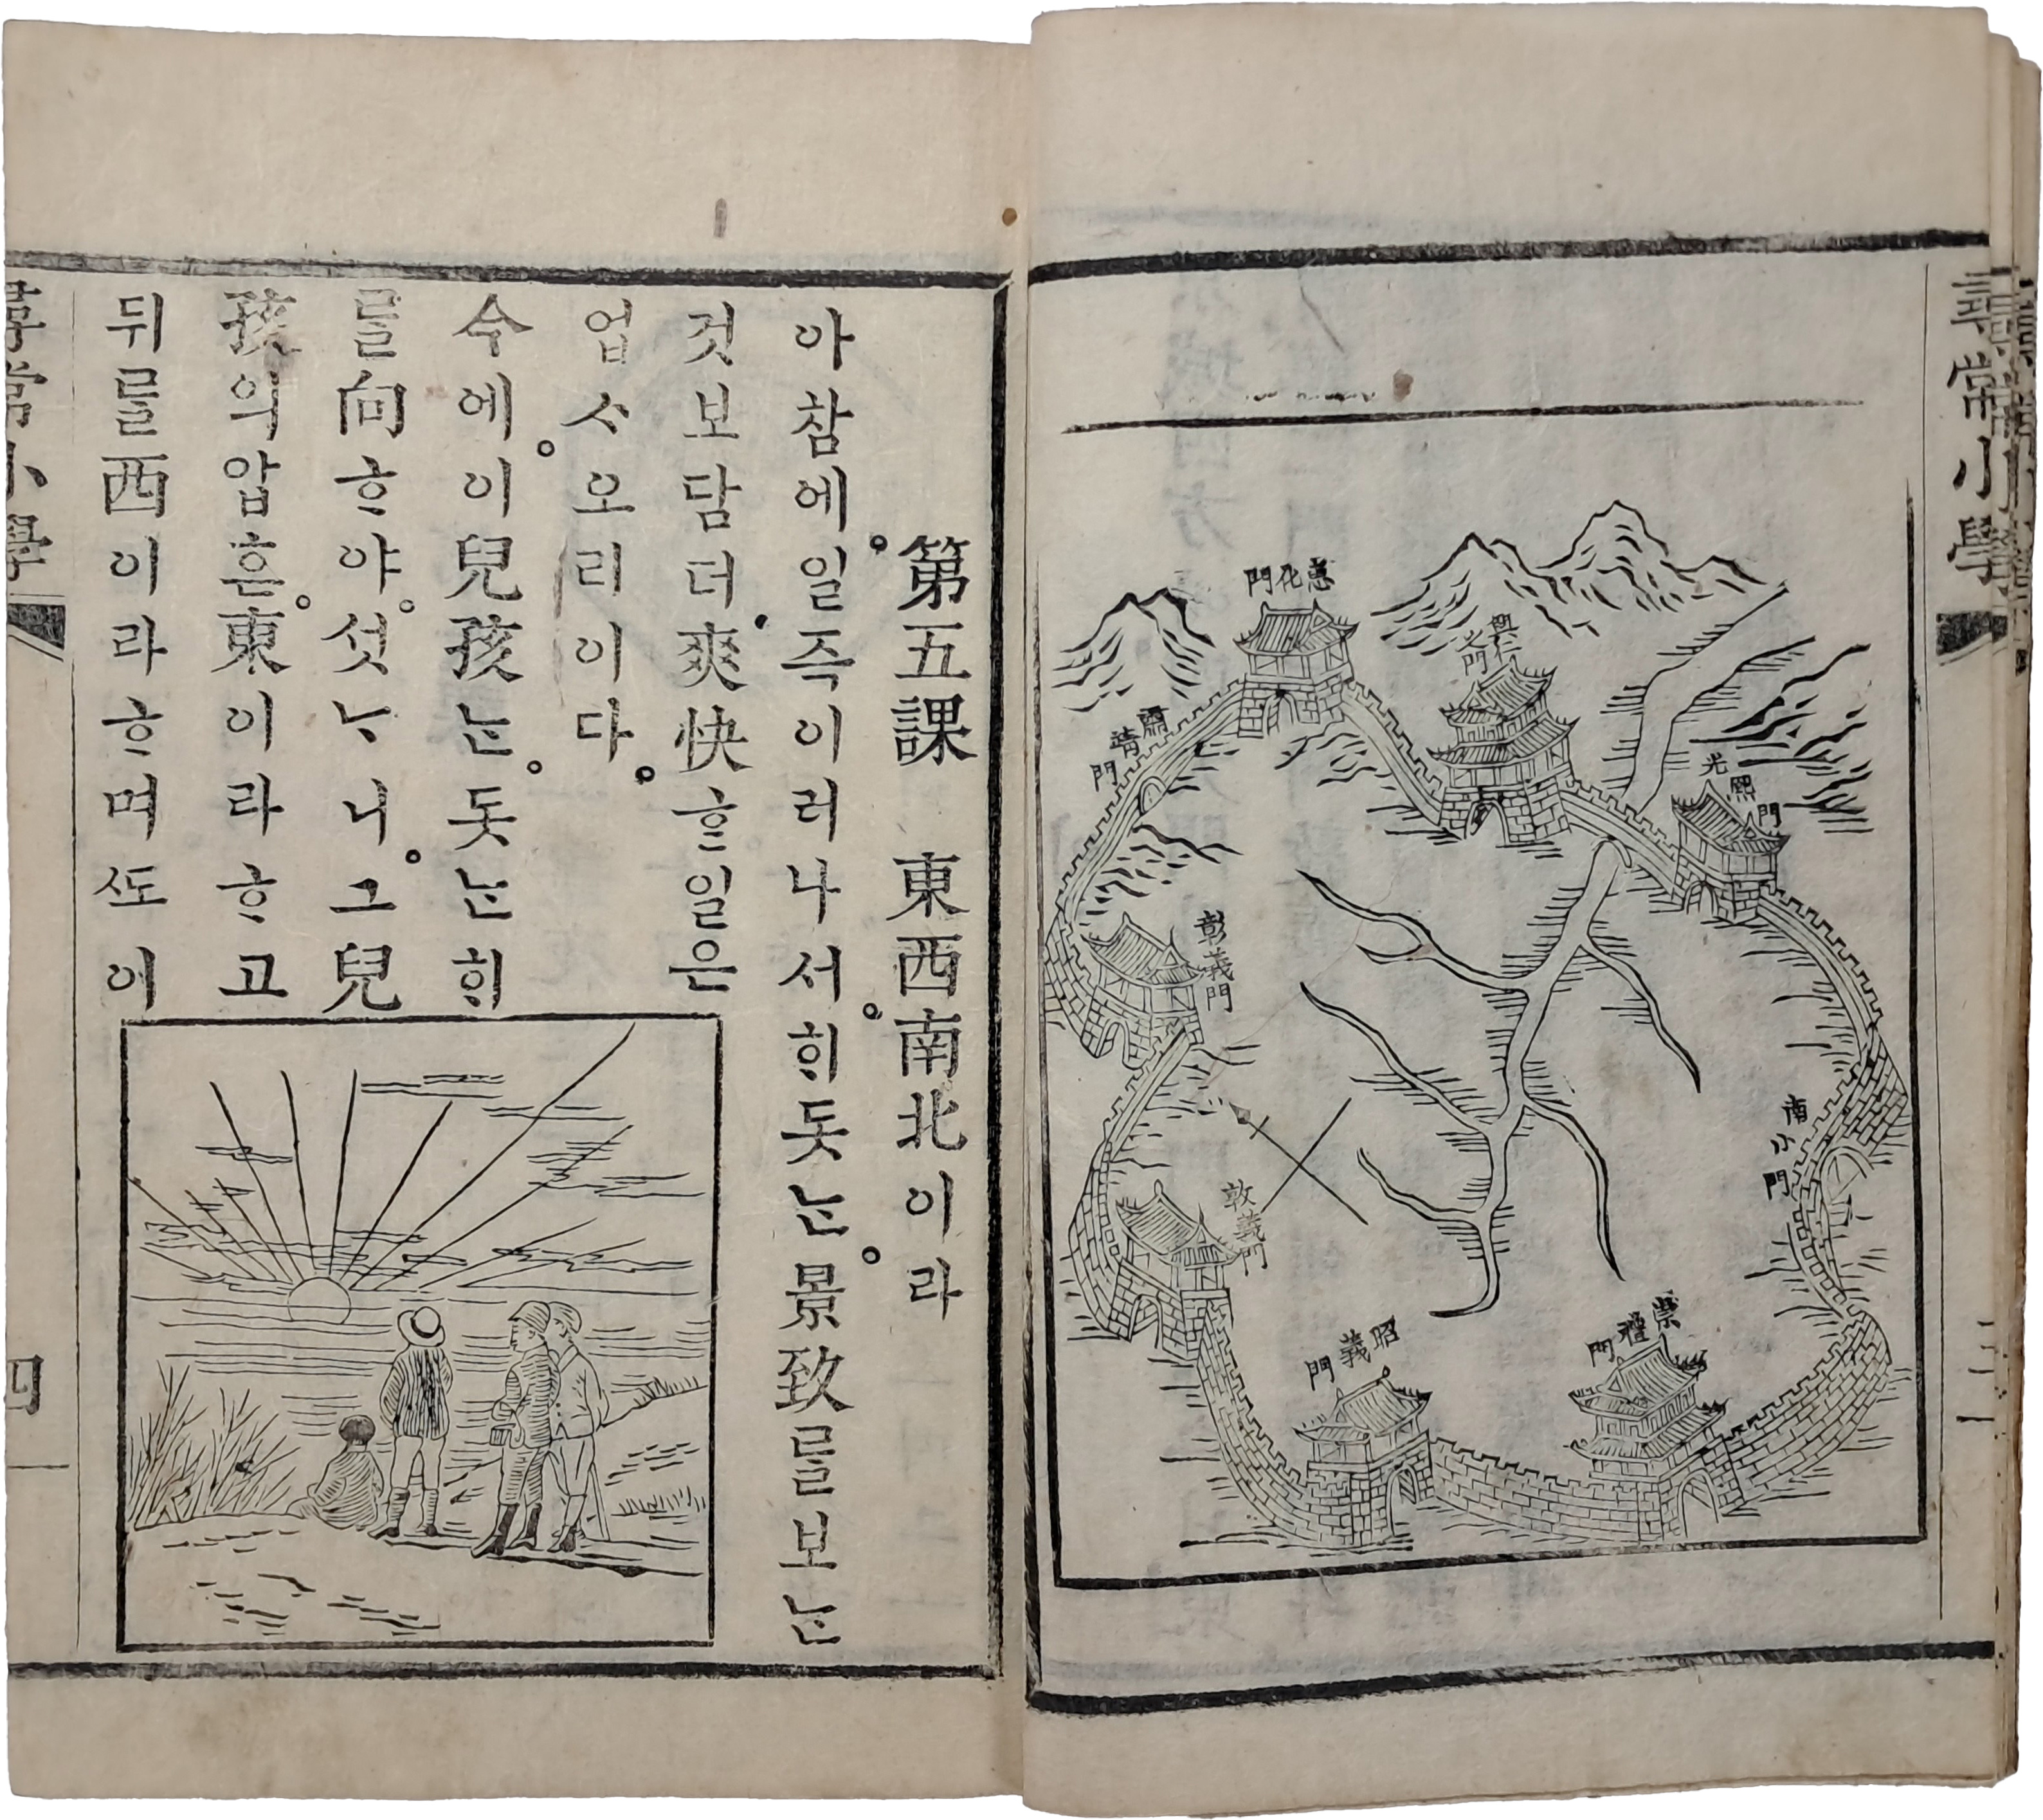 尋常小學
三
惠化門
興仁之門
光熙門
肅靖門
彰義門
南小門
敦義門
崇禮門
昭義門
第五課 東西南北이라
아참에。일즉이러나서。ᄒᆡ돗ᄂᆞᆫ。景致를보ᄂᆞᆫ
것보담더爽快ᄒᆞᆫ일은
업ᄉᆞ오리이다。
今에。이兒孩ᄂᆞᆫ。돗ᄂᆞᆫᄒᆡ
를向ᄒᆞ야。섯ᄂᆞ니。그兒
孩의압흔。東이라ᄒᆞ고
뒤를西이라ᄒᆞ며ᄯᅩ이
尋常小學
四